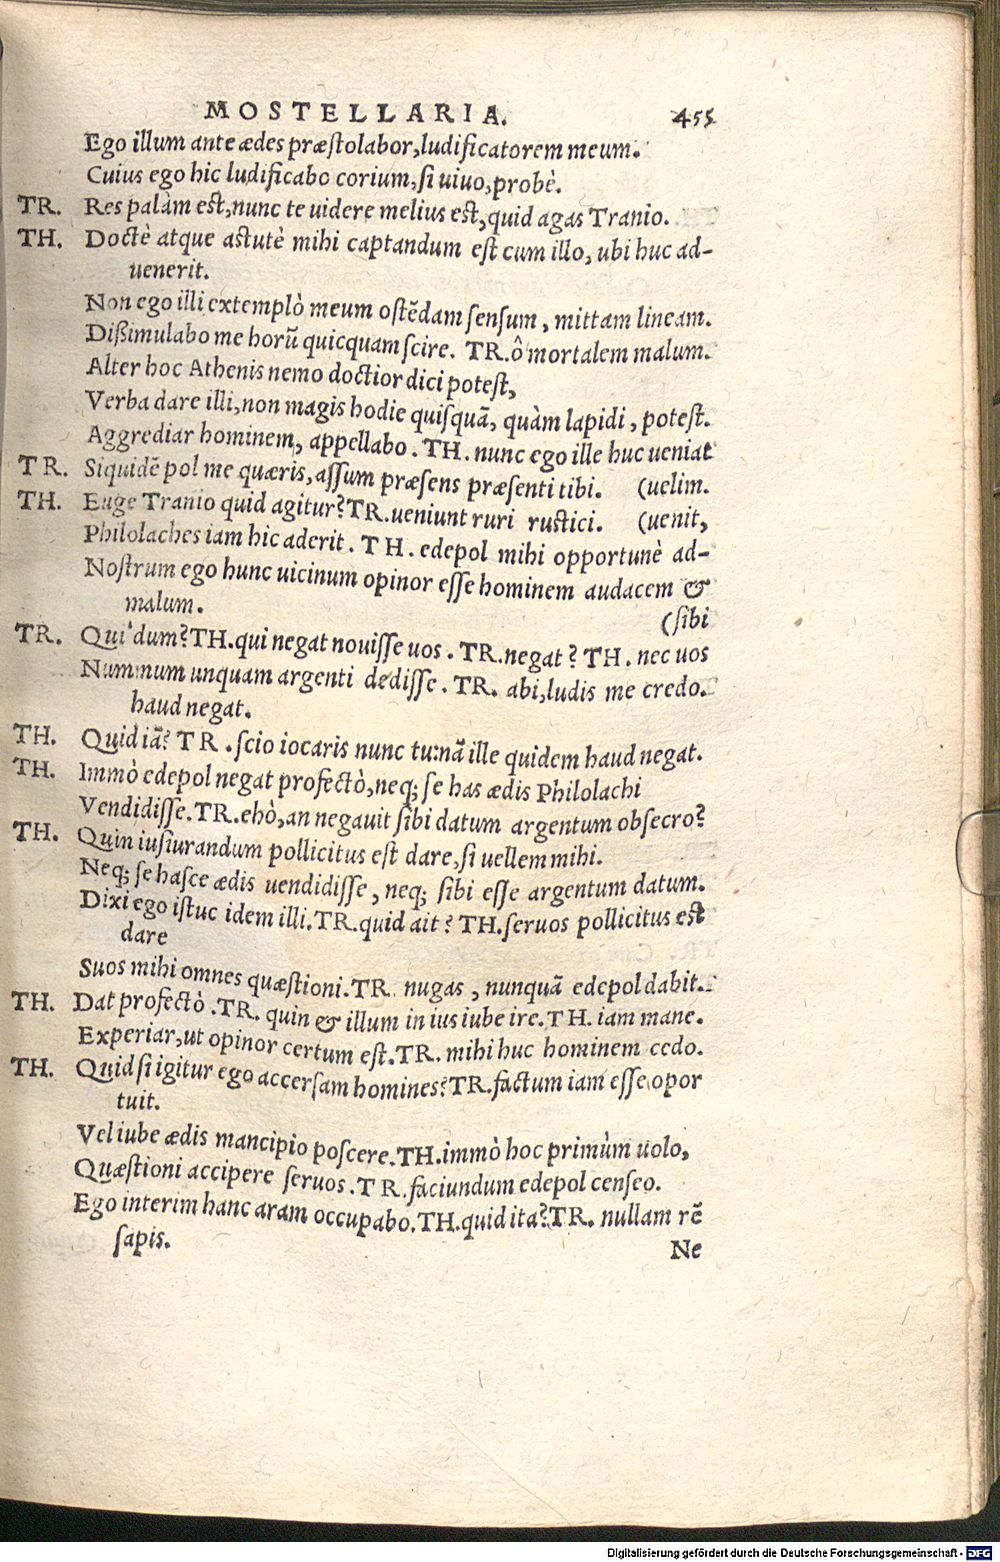 MOSTELLARIA. 455
Ego illum ante ædes præstolabor, ludificatorem meum.
Cuius ego hic ludificabo corium, si uiuo, probè.
TR. Res palàm est, nunc te uidere melius est, quid agas Tranio.
TH. Doctè atque astutè mihi captandum est cum illo, ubi huc ad-
uenerit.
Non ego illi extemplò meum ostẽdam sensum, mittam lineam.
Dißimulabo me horũ quicquam scire. TR. ô mortalem malum.
Alter hoc Athenis nemo doctior dici potest,
Verba dare illi, non magis hodie quisquã, quàm lapidi, potest.
Aggrediar hominem, appellabo. TH. nunc ego ille huc ueniat
TR. Siquidẽ pol me quæris, assum præsens præsenti tibi. (uelim.
TH. Euge Tranio quid agitur? TR. ueniunt ruri rustici. (uenit,
Philolaches iam hic aderit. TH. edepol mihi opportunè ad-
Nostrum ego hunc uicinum opinor esse hominem audacem &
malum. (sibi
TR. Qui dum? TH. qui negat nouisse uos. TR. negat? TH. nec uos
Nummum unquam argenti dedisse. TR. abi, ludis me credo.
haud negat.
TH. Quid iã? TR. scio iocaris nunc tu: nã ille quidem haud negat.
TH. Immò edepol negat profectò, neq; se has ædis Philolachi
Vendidisse. TR. ehò, an negauit sibi datum argentum obsecro?
TH. Quin iusiurandum pollicitus est dare, si uellem mihi.
Neq; se hasce ædis uendidisse, neq; sibi esse argentum datum.
Dixi ego istuc idem illi. TR. quid ait? TH. seruos pollicitus est
dare
Suos mihi omnes quæstioni. TR. nugas, nunquã edepol dabit.
TH. Dat profectò. TR. quin & illum in ius iube ire. TH. iam mane.
Experiar, ut opinor certum est. TR. mihi huc hominem cedo.
TH. Quid si igitur ego accersam homines? TR. factum iam esse opor
tuit.
Vel iube ædis mancipio poscere. TH. immò hoc primùm uolo,
Quæstioni accipere seruos. TR. faciundum edepol censeo.
Ego interim hanc aram occupabo. TH. quid ita? TR. nullam rẽ
sapis. Ne
Digitalisierung gefördert durch die Deutsche Forschungsgemeinschaft - DFG